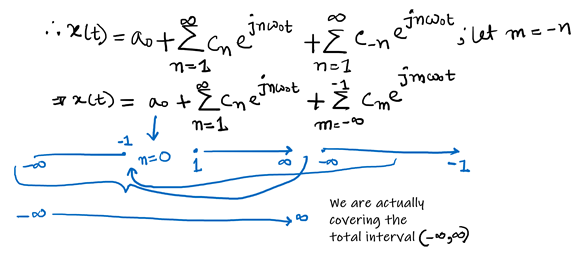 ∴ x(t) = a₀ + ∑_{n=1}^{∞} cₙ e^{jnω₀t} + ∑_{n=1}^{∞} c₋ₙ e^{jnω₀t} ; let m = -n
⇒ x(t) = a₀ + ∑_{n=1}^{∞} cₙ e^{jnω₀t} + ∑_{m=-∞}^{-1} cₘ e^{jmω₀t}
-∞ -1 n=0 1 ∞ -∞ -1
-∞ ∞
We are actually
covering the
total interval (-∞,∞)